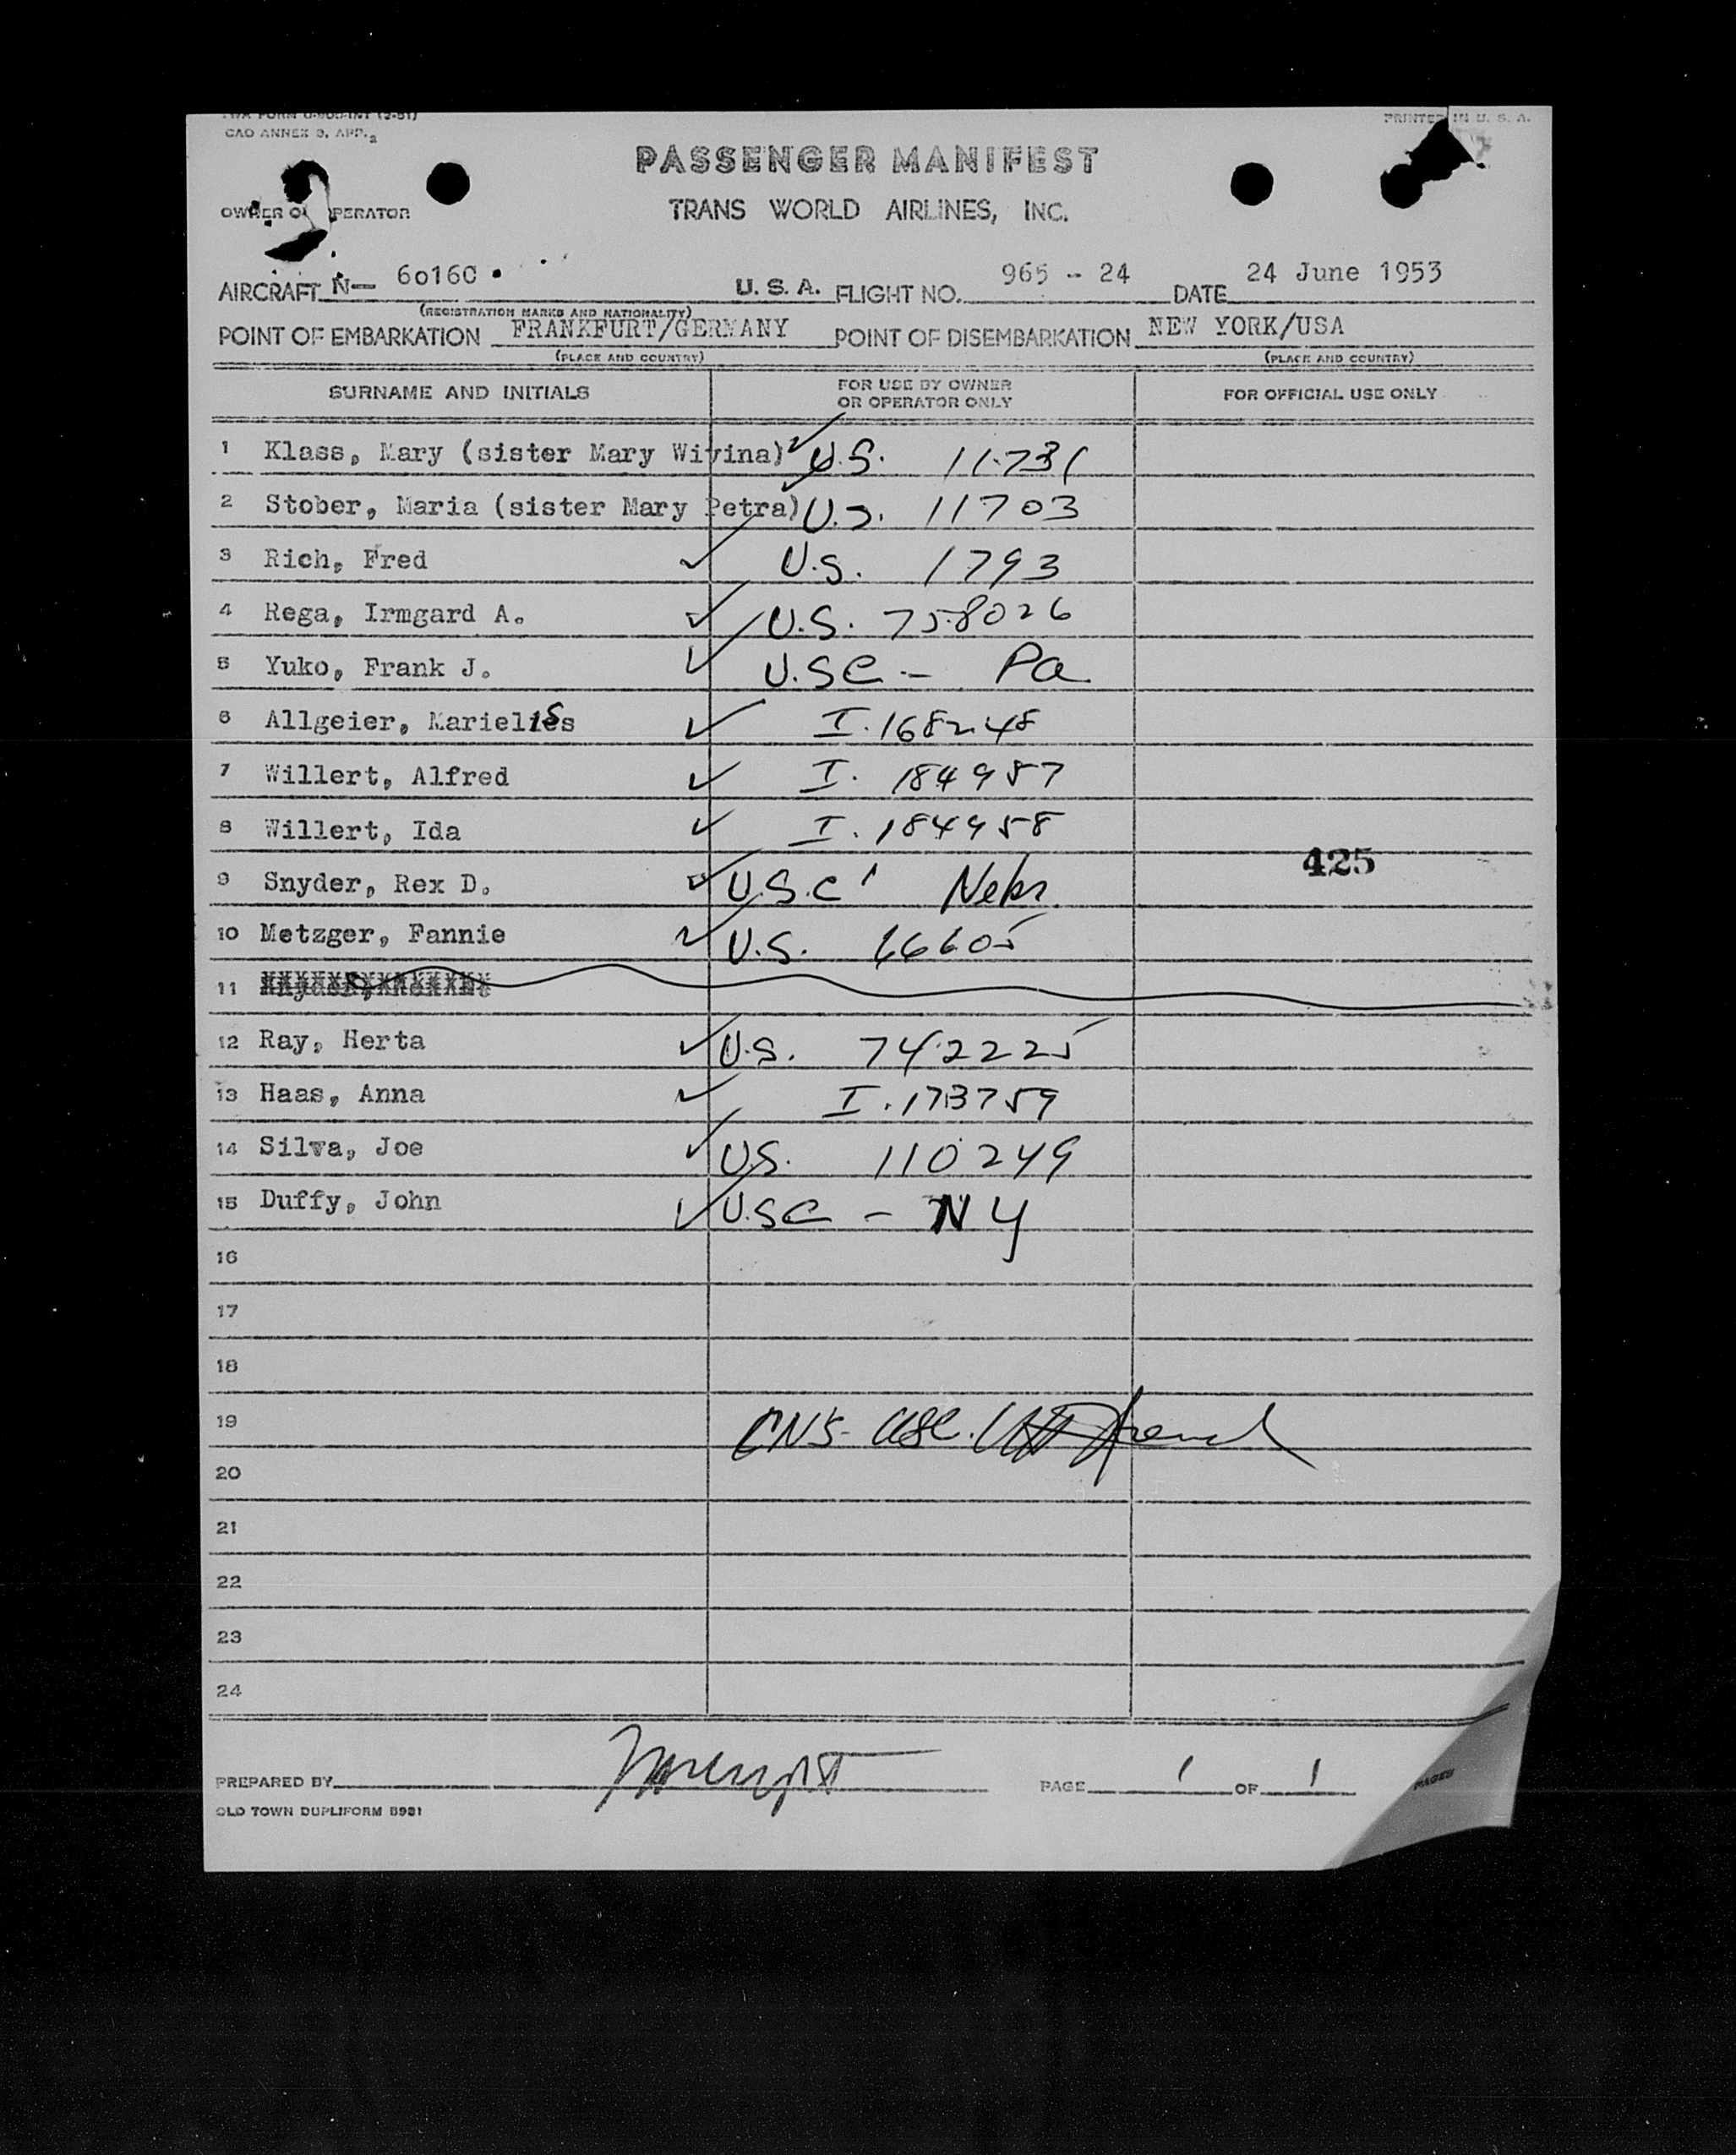 TWA FORM INT (2-51)
CAO ANNEX 9, APP. 2
PRINTED IN U. S. A.
PASSENGER MANIFEST
OWNER OR OPERATOR TRANS WORLD AIRLINES, INC.
AIRCRAFT N— 60160 U. S. A. FLIGHT NO. 965 - 24 DATE 24 June 1953
(REGISTRATION MARKS AND NATIONALITY)
POINT OF EMBARKATION FRANKFURT/GERMANY POINT OF DISEMBARKATION NEW YORK/USA
(PLACE AND COUNTRY) (PLACE AND COUNTRY)
SURNAME AND INITIALS FOR USE BY OWNER OR OPERATOR ONLY FOR OFFICIAL USE ONLY
1 Klass, Mary (sister Mary Wivina) U.S. 11731
2 Stober, Maria (sister Mary Petra) U.S. 11703
3 Rich, Fred U.S. 1793
4 Rega, Irmgard A. U.S. 758026
5 Yuko, Frank J. U.S.C - Pa
6 Allgeier, Marielies I. 168248
7 Willert, Alfred I. 184957
8 Willert, Ida I. 184958
425
9 Snyder, Rex D. U.S.C Nebr.
10 Metzger, Fannie U.S. 66605
11
12 Ray, Herta U.S. 742225
13 Haas, Anna I. 173759
14 Silva, Joe U.S. 110249
15 Duffy, John U.S.C - NY
16
17
18
19
20
21
22
23
24
PREPARED BY PAGE 1 OF 1 PAGES
OLD TOWN DUPLIFORM B981